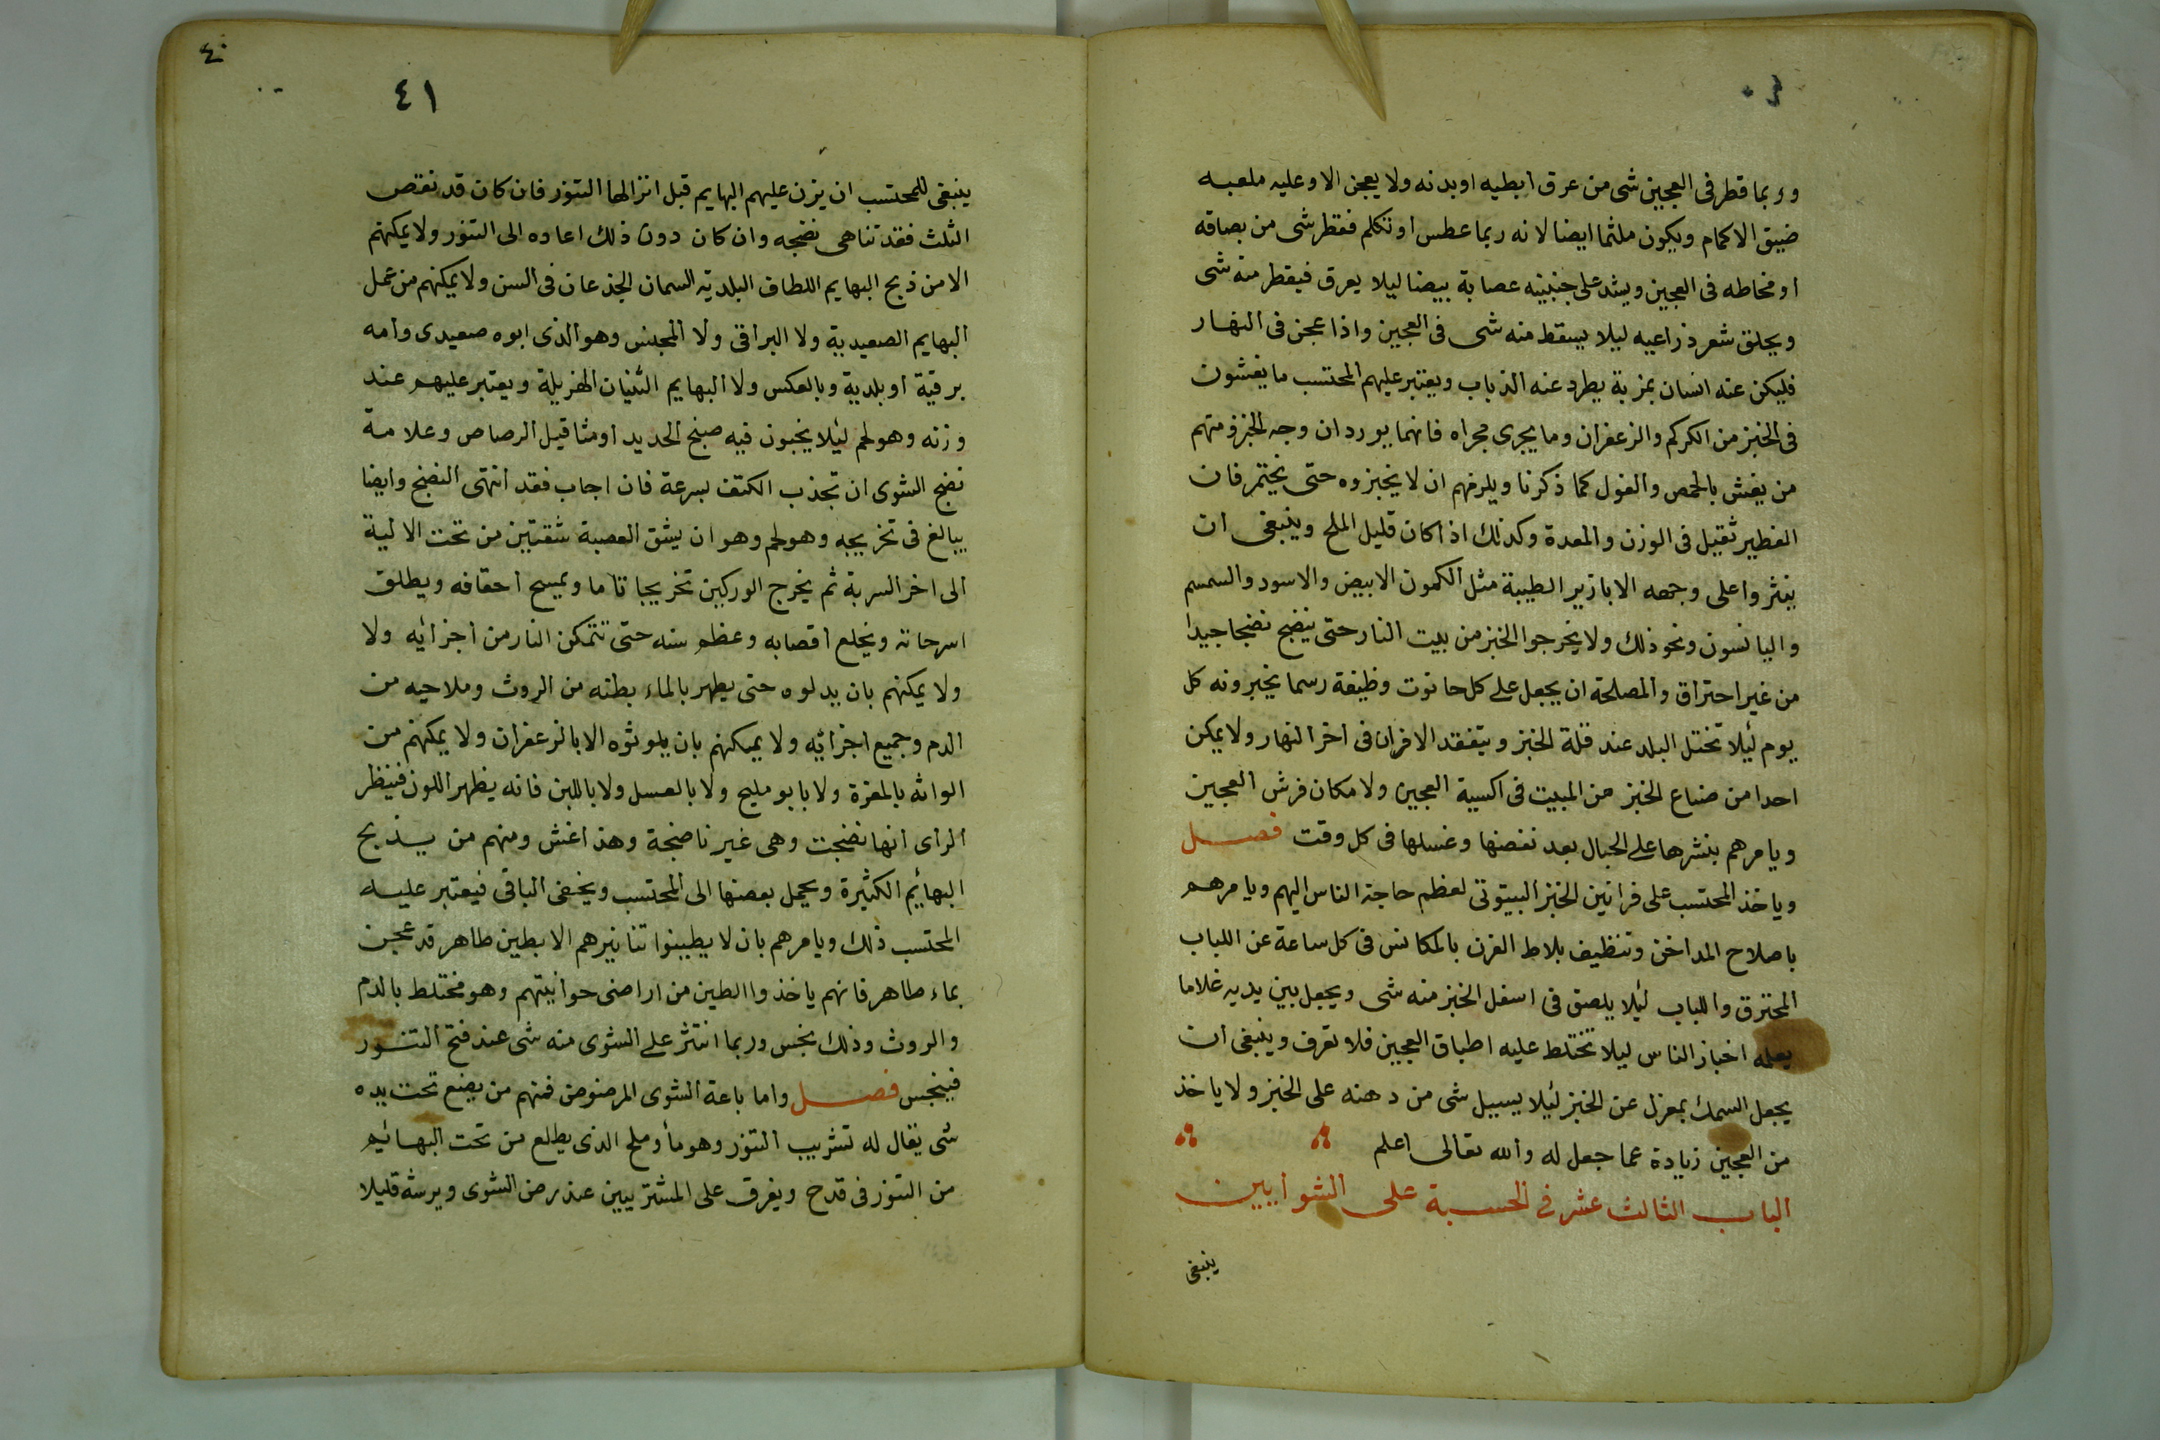 وربما قطر فى العجين شى من عرق ابطيه او بدنه ولا يعجن الا وعليه ملعبه
ضيق الاكمام ويكون ملثما ايضا لانه ربما عطس او تكلم فقطر شى من بصاقه
او مخاطه فى العجين ويشد على جنبينه عصابة بيضا ليلا يعرق فيقطر منه شى
ويحلق شعر ذراعيه ليلا يسقط منه شى فى العجين واذا عجن فى النهار
فليكن عنه انسان بمزبة يطرد عنه الذباب ويعتبر عليهم المحتسب ما يغشون
فى الخبز من الكركم والزعفران وما يجرى مجراه فانهما يوردان وجه الخبز ومنهم
من يغش بالحمص والفول كما ذكرنا ويلزمهم ان لا يخبزوه حتى يختمر فان
الفطير ثقيل فى الوزن والمعدة وكذلك اذا كان قليل الملح وينبغى ان
ينثروا على وجهه الابازير الطيبة مثل الكمون الابيض والاسود والسمسم
واليانسون ونحو ذلك ولا يخرجوا الخبز من بيت النار حتى ينضج نضجا جيدا
من غير احتراق والمصلحة ان يجعل على كل حانوت وظيفة رسما يخبزونه كل
يوم ليلا تختل البلد عند قلة الخبز ويتفقد الافران فى اخر النهار ولا يمكن
احدا من صناع الخبز من المبيت فى اكسية العجين ولا مكان فرش العجين
ويامرهم بنشرها على الحبال بعد نفضها وغسلها فى كل وقت فصل
وياخذ المحتسب على فرانين الخبز البيتوتى لعظم حاجة الناس اليهم ويامرهم
باصلاح المداخن وتنظيف بلاط الفرن بالمكانس فى كل ساعة عن اللباب
المحترق واللباب ليلا يلصق فى اسفل الخبز منه شى ويجعل بين يديه غلاما
يعلمه اخباز الناس ليلا تختلط عليه اطباق العجين فلا تعرف وينبغى ان
يجعل السمك بمعزل عن الخبز ليلا يسيل شى من دهنه على الخبز ولا ياخذ
من العجين زيادة عما جعل له والله تعالى اعلم
الباب الثالث عشر فى الحسبة على الشوايين
ينبغى
٤٠
٤١
ينبغى للمحتسب ان يزن عليهم البهايم قبل انزالها التنور فان كان قد نقص
الثلث فقد تناهى نضجه وان كان دون ذلك اعاده الى التنور ولا يمكنهم
الا من ذبح البهايم اللطاف البلدية السمان الجذعان فى السن ولا يمكنهم من عمل
البهايم الصعيدية ولا البراقى ولا المجنس وهو الذى ابوه صعيدى وامه
برقية او بلدية وبالعكس ولا البهايم الثنيان الهزيلة ويعتبر عليهم عند
وزنه وهو لحم ليلا يخبون فيه صنج الحديد او مثاقيل الرصاص وعلامة
نضج الشوى ان تجذب الكتف بسرعة فان اجاب فقد انتهى النضج وايضا
يبالغ فى تخريجه وهو لحم وهو ان يشق العصبة شقتين من تحت الالية
الى اخر السربة ثم يخرج الوركين تخريجا تاما ويمسح احقافه ويطلق
اسرحاته ويخلع اقصابه وعظم سنه حتى تتمكن النار من اجزائه ولا
ولا يمكنهم بان يدلوه حتى يطهر بالماء بطنه من الروث وملاحيه من
الدم وجميع اجزائه ولا يمكنهم بان يلوثوه الا بالزعفران ولا يمكنهم من
الواثه بالمغرة ولا بابو مليح ولا بالعسل ولا باللبن فانه يظهر اللون فينظر
الراى انها نضجت وهى غير ناضجة وهذا غش ومنهم من يذبح
البهائم الكثيرة ويحمل بعضها الى المحتسب ويخفى الباقى فيعتبر عليه
المحتسب ذلك ويامرهم بان لا يطينوا تنانيرهم الا بطين طاهر قد عجن
بماء طاهر فانهم ياخذوا الطين من اراضى حوانيتهم وهو مختلط بالدم
والروث وذلك نجس وربما انتثر على الشوى منه شى عند فتح التنور
فينجس فصل واما باعة الشوى المرضوض فمنهم من يضع تحت يده
شى يقال له تشريب التنور وهو ماء وملح الذى يطلع من تحت البهائم
من التنور فى قدح ويفرق على المشتريين عند رض الشوى ويرشه قليلا